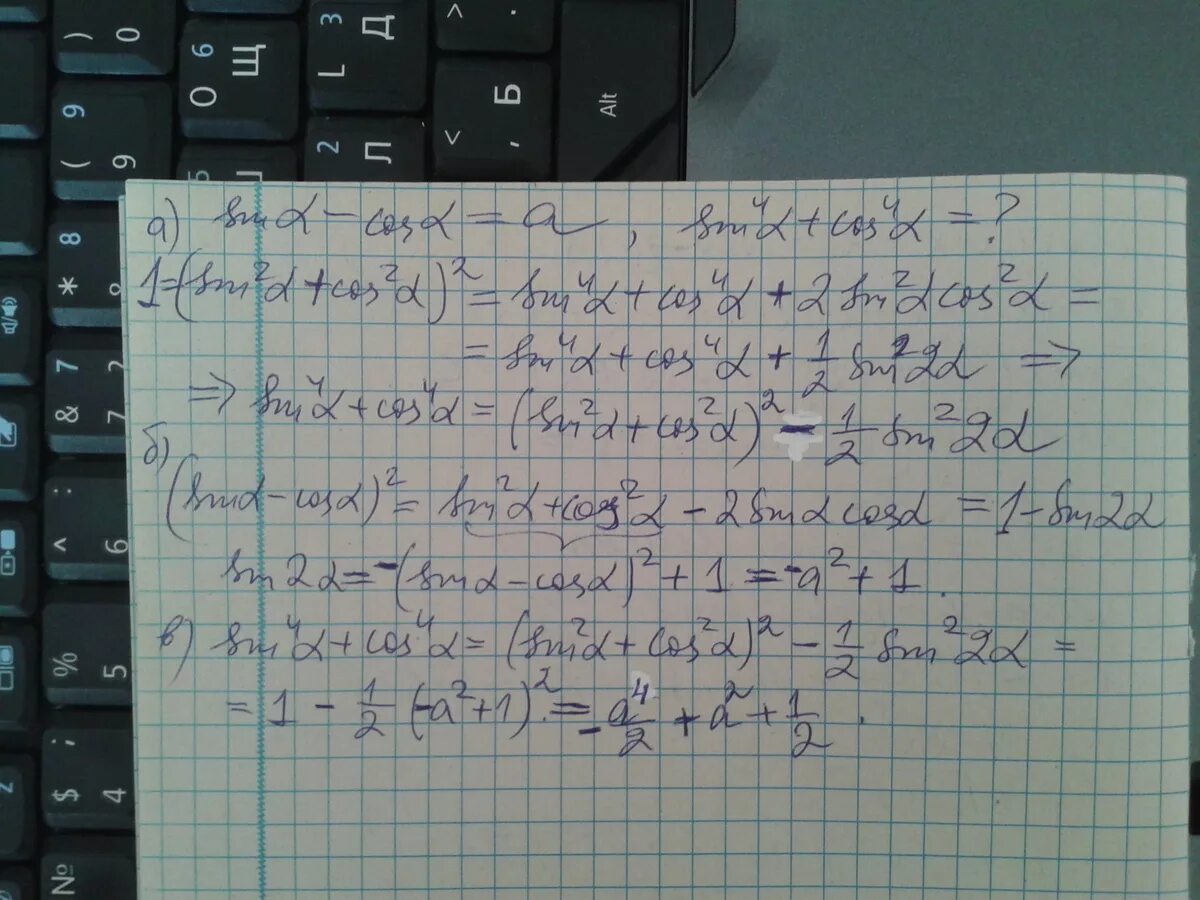 ) 0
O Щ 6
L Д 3
> .
( 9 9
5
2 Л
< , Б
Alt
* 8
& 7 7
^ : 6
% 5
$ ; 4
№
а) sin α − cos α = a, sin⁴α + cos⁴α = ?
1 = (sin²α + cos²α)² = sin⁴α + cos⁴α + 2 sin²α cos²α =
= sin⁴α + cos⁴α + 1/2 sin²2α ⇒
⇒ sin⁴α + cos⁴α = (sin²α + cos²α)² − 1/2 sin²2α
б)
(sin α − cos α)² = sin²α + cos²α − 2 sin α cos α = 1 − sin 2α
sin 2α = −(sin α − cos α)² + 1 = −a² + 1.
в) sin⁴α + cos⁴α = (sin²α + cos²α)² − 1/2 sin²2α =
= 1 − 1/2 (−a² + 1)² = − a⁴/2 + a² + 1/2.